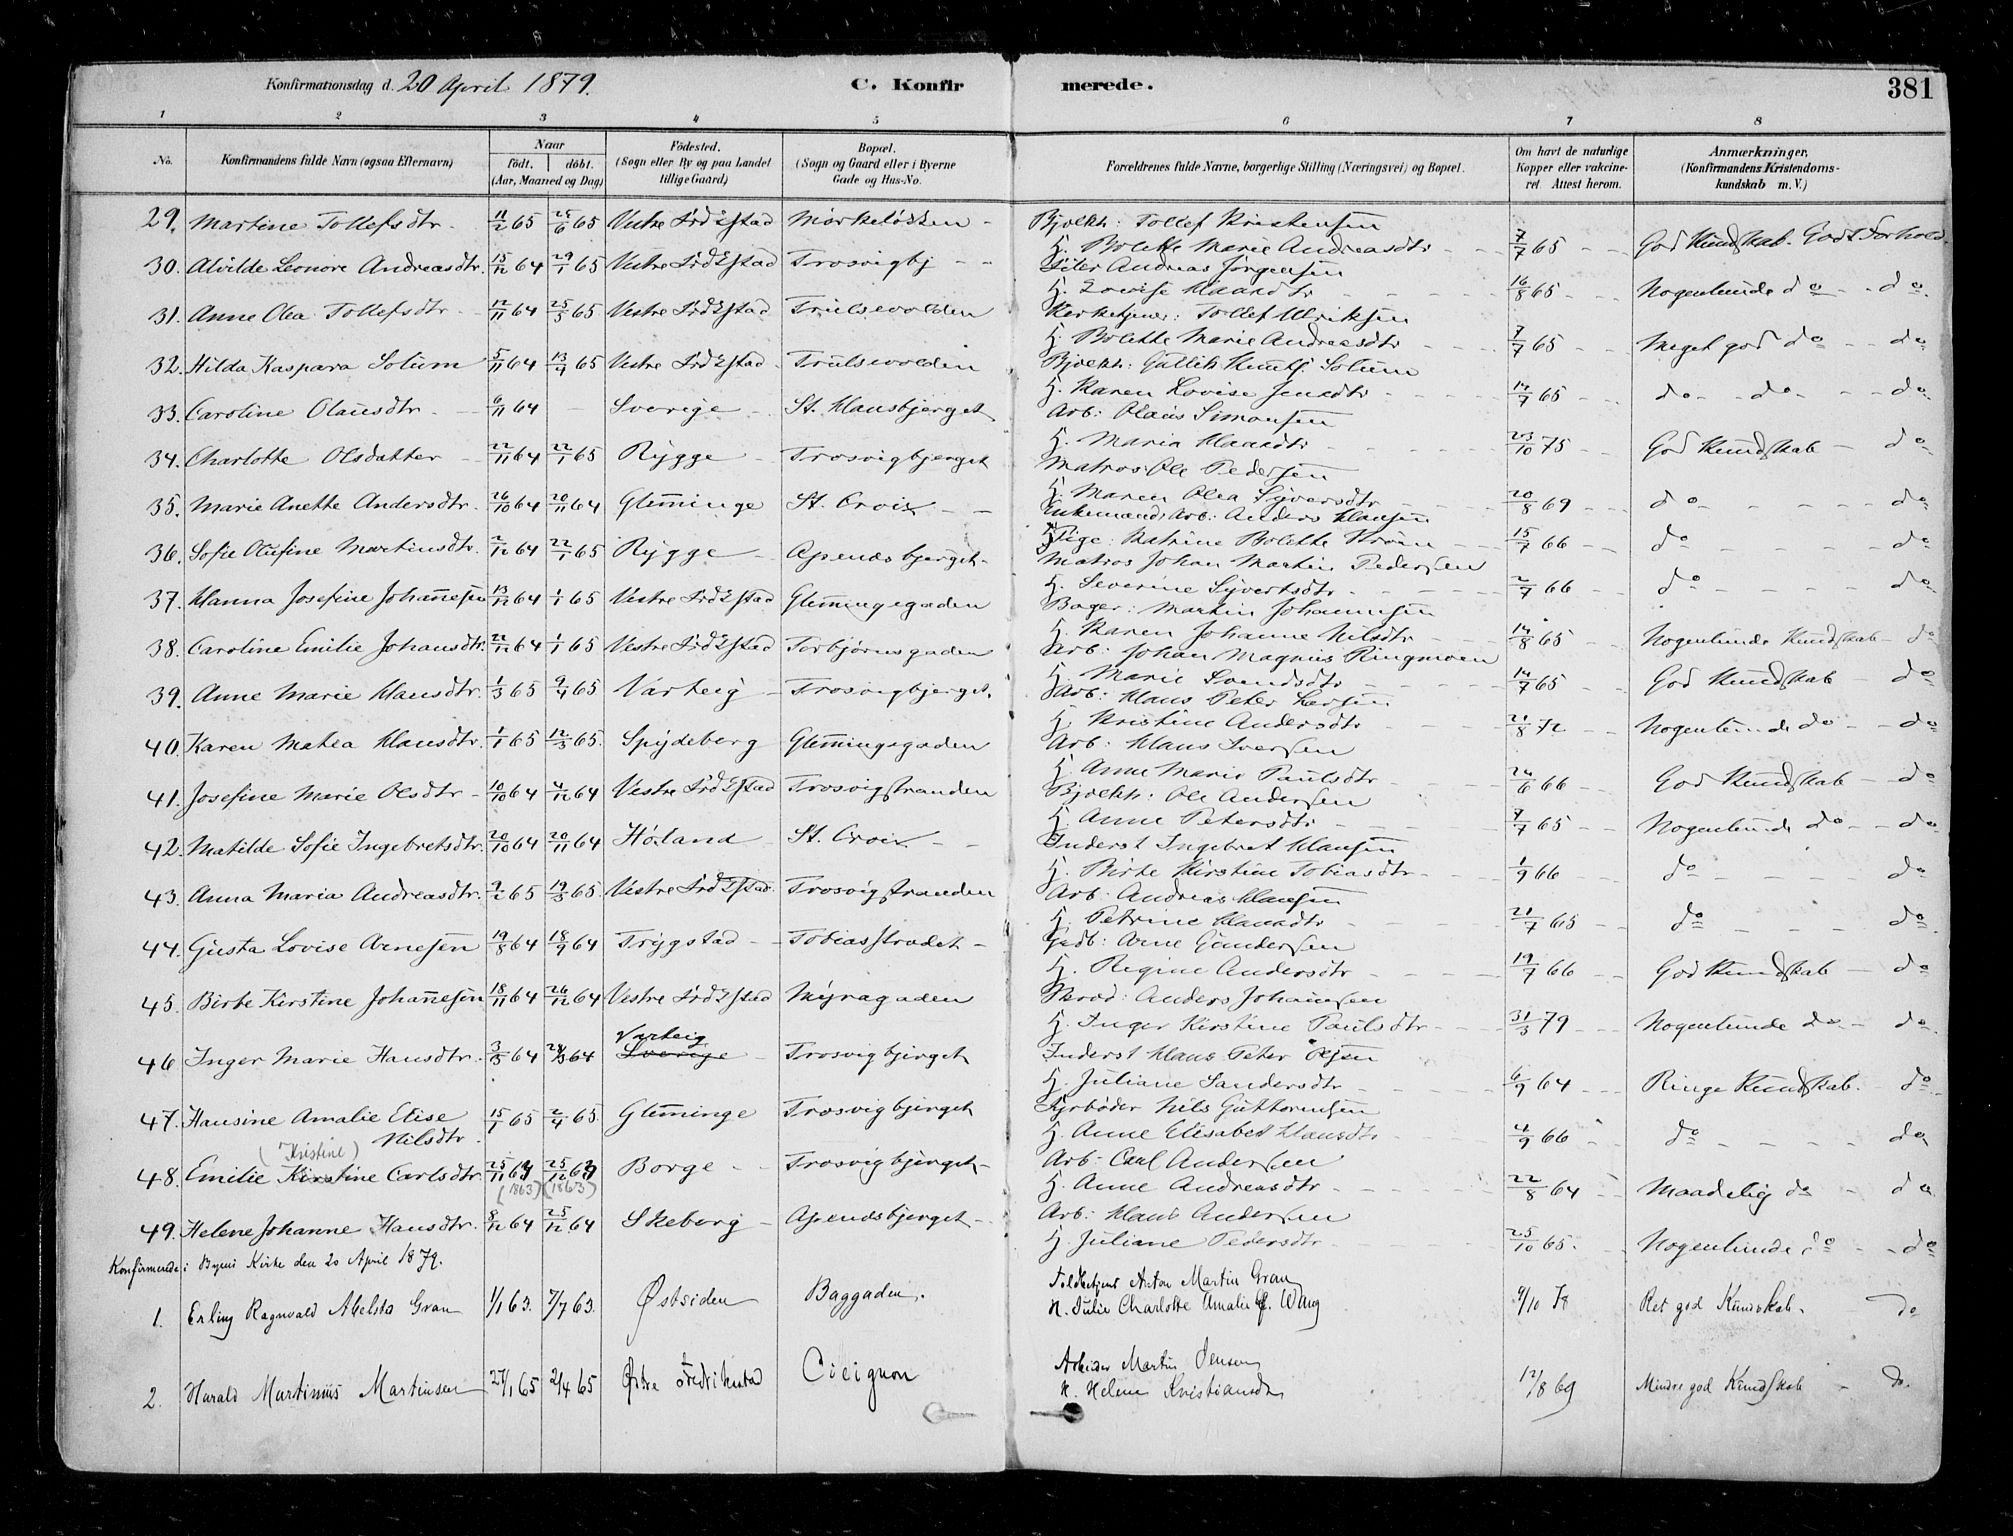 Konfirmationsdag d. 20 April 1879.
C. Konfirmerede.
381
1 2 3 4 5 6 7 8
No.
Konfirmandens fulde Navn (ogsaa Efternavn)
Naar
födt. döbt.
(Aar, Maaned og Dag)
Födested.
(Sogn eller By og paa Landet
tillige Gaard)
Bopæl.
(Sogn og Gaard eller i Byerne
Gade og Hus-No.
Forældrenes fulde Navne, borgerlige Stilling (Næringsvei) og Bopæl.
Om havt de naturlige
Kopper eller vakcine-
ret. Attest herom.
Anmærkninger,
(Konfirmandens Kristendoms-
kundskab m. V.)
29. Martine Tollefsdtr. 11/2 65 25/6 65 Vestre Frdkstad Mørkeløkken - Bjælkh: Tollef Kristensen
H. Bolette Marie Andreasdtr 7/7 65 God Kundskab. Godt Forhold.
30. Alvilde Leonore Andreasdtr. 15/12 64 29/1 65 Vestre Frdkstad Trosvigbj - - Peter Andreas Jørgensen
H. Lovise Hansdtr 16/8 65 Nogenlunde do - do
31. Anne Olea Tollefsdtr 12/11 64 25/5 65 Vestre Frdkstad Trulsevolden Kirketjener: Tollef Ulriksen
H. Bolette Marie Andreasdtr 7/7 65 Meget god do - do
32. Hilda Kaspara Solum 5/11 64 13/4 65 Vestre Frdkstad Trulsevolden Bjælkh: Gullik Knuts. Solum
H. Karen Lovise Jensdtr 14/7 65 do - do - do
33. Caroline Olausdtr. 6/11 64 - Sverige St. Hansbjerget Arb: Olaus Simonsen
H. Maria Hansdtr 23/10 75 God Kundskab - do
34. Charlotte Olsdatter 22/11 64 22/1 65 Rygge Trosvigbjerget Matros Ole Pedersen
H. Maren Olea Syversdtr 20/8 69 do - do
35. Marie Anette Andersdtr. 26/10 64 20/11 64 Glemminge St. Croix - - Enkemand, Arb: Anders Hansen
Pige: Katrine Bolette 15/7 66 do - do
36. Sofie Olufine Martinsdtr. 2/12 64 22/1 65 Rygge Apenæsbjerget - Matros Johan Martin Pedersen
H. Severine Syvertsdtr 2/7 66 do - do
37. Hanna Josefine Johannesen 13/12 64 1/1 65 Vestre Frdkstad Glemmingegaden Bager: Martin Johannesen
H. Karen Johanne Nilsdtr 14/8 65 Nogenlunde Kundskab - do
38. Caroline Emilie Johansdtr. 22/12 64 1/1 65 Vestre Frdkstad Torbjørnsgaden Arb: Johan Magnus Ringmoen
H. Marie Svendsdtr 14/7 65 God Kundskab - do
39. Anne Marie Hansdtr. 1/3 65 9/4 65 Varteig - Trosvigbjerget. Arb: Hans Peter Larsen
H. Kristine Andersdtr 21/8 72 Nogenlunde do - do
40. Karen Mathea Hansdtr. 1/1 65 12/3 65. Spydeberg Glemmingegaden Arb: Hans Iversen
H. Anne Marie Paulsdtr 24/6 66 God Kundskab - do
41. Josefine Marie Olsdtr - 10/10 64 4/12 64 Vestre Frdkstad Trosvigstranden Bjælkh: Ole Andersen
H. Anne Petersdtr 7/7 65 Nogenlunde do - do
42. Matilde Sofie Ingebretsdtr. 20/10 64 20/11 64 Høland St. Croix - - Inderst Ingebret Hansen
H. Birte Kirstine Tobiasdtr 1/9 66 do - do
43. Anna Maria Andreasdtr. 9/2 65 19/3 65. Vestre Frdkstad. Trosvigstranden Arb: Andreas Hansen
H. Petrine Hansdtr 21/7 65 do - do
44. Gusta Lovise Arnesen 19/8 64 18/9 64 Trygstad - Tobiasstrædet - Gjdb: Arne Gundersen
H. Regine Andersdtr 19/7 66 God Kundskab - do
45. Birte Kirstine Johannesen 18/11 64 26/12 64 Vestre Frdkstad Myragaden Skræd: Anders Johansen
H. Inger Kirstine Paulsdtr 31/3 79 Nogenlunde do - do
Varteig
46 Inger Marie Hansdtr. 3/3 64 64 Sverige Trosvigbjerget Inderst Hans Peter Olsen
H. Juliane Sandersdtr 6/9 64 Ringe Kundskab. do
47. Hansine Amalie Elise
Nilsdtr. 15/1 65 2/4 65. Glemminge Trosvigbjerget Fyrbøder Nils Guttormsen
H. Anne Elisabet Hansdtr 4/9 66 do - do
(Kristine)
48. Emilie Kirstine Carlsdtr. 25/11 63 25/12 63 Borge - Trosvigbjerget - Arb: Carl Andersen
(1863) (1863)
H. Anne Andreasdtr 22/8 64 Maadelig do - do
49. Helene Johanne Hansdtr. 8/12 64 25/12 64 Skeberg - Apenæsbjerget - Arb: Hans Andersen
H. Juliane Pedersdtr 25/10 65. Nogenlunde do - do
Konfirmerede i Byens Kirke den 20 April 1879.
1. Erling Ragnvald Abelsto Gran 1/1 63. 7/7 63. Østsiden Baggaden. Toldbetjent Anton Martin Gran
H. Julie Charlotte Amalie f. Wang 9/10 78 Ret god Kundskab. do
2. Harald Martinius Martinsen 27/1 65 2/4 65 Østre Fredrikstad Cicignon Arbeider Martin Jensen
H. Helene Kristiansdtr 12/8 69 Mindre god Kundskab - do.